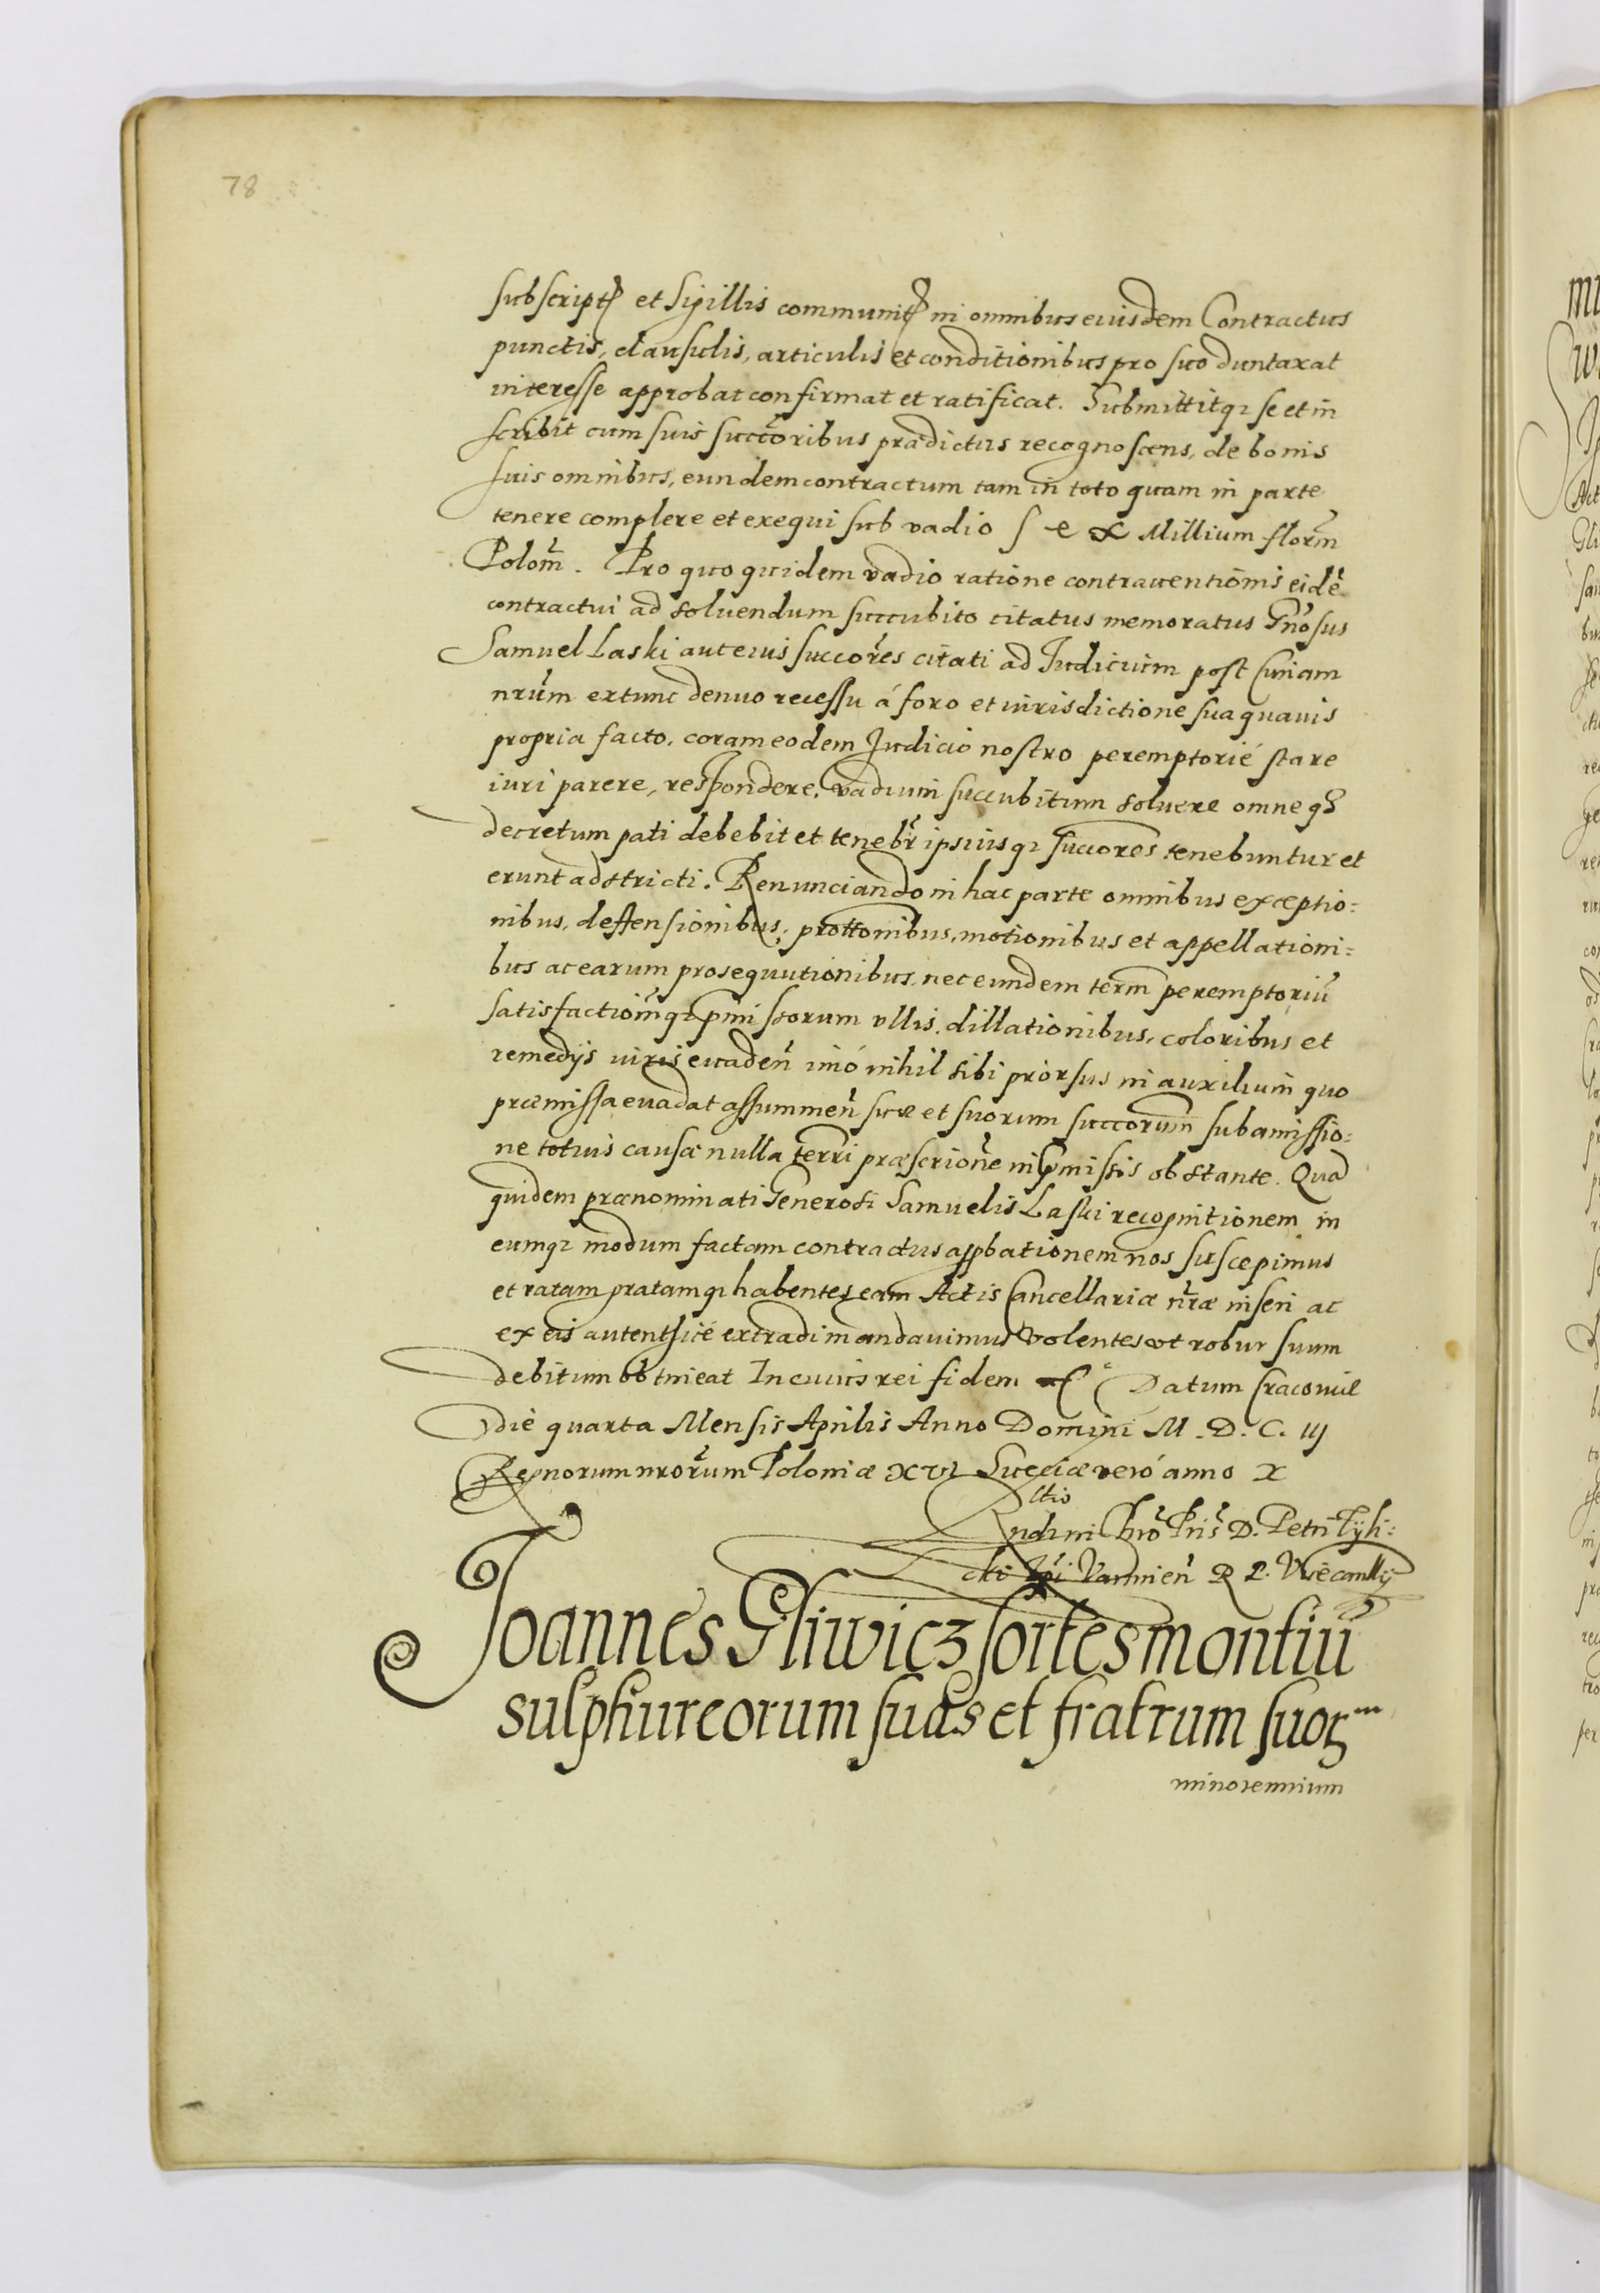 78
subscript et Sigillis communit in omnibus eiusdem Contractus
punctis, clausulis, articulis et conditionibus pro suo duntaxat
interesse approbat confirmat et ratificat. Submittitq₃ se et in
scribit cum suis succoribus prædictus recognoscens, de bonis
suis omnibus, eundem contractum tam in toto quam in parte
tenere complere et exequi sub vadio s e x Millium florm̃
Polom̃. Pro quo quidem vadio ratione contrauentionis eidẽ
contractui ad soluendum succubito citatus memoratus Gñosus
Samuel Laski aut eius succores citati ad Iudicium post Curiam
nrũm extunc denuo recessu á foro et iurisdictione sua quauis
propria facto, coram eodem Iudicio nostro peremptorié stare
iuri parere, respondere, vadium succubitum soluere omneq₃
decretum pati debebit et tenebr̃ ipsiusq₃ succores tenebuntur et
erunt adstricti. Renunciando in hac parte omnibus exceptio=
nibus, deffensionibus, prottonibus, motionibus et appellationi=
bus ac earum prosequutionibus, nec eundem term̃ peremptoriũ
satisfactiom̃q₃ pmissorum vllis dillationibus, coloribus et
remedijs iuris euaden̄ imó nihil sibi prorsus in auxilium quo
præmissa euadat assummen̄ suæ et suorum succorum sub amissio=
ne totius causæ nulla terr̃i præscrione in pmissis obstante. Quã
quidem prænominati Generosi Samuelis Laski recognitionem in
eumq₃ modum factam contractus appbationem nos suscepimus
et ratam gratamq₃ habentes eam Actis Cancellariæ nr̃æ inseri ac
ex eis autenthicé extradi mandauimus volentes vt robur suum
debitum obtineat In cuius rei fidem Datum Cracouiæ
die quarta Mensis Aprilis Anno Domini M. D. C. III
Regnorum nrorum Poloniæ XVI Sueciæ veró anno X
ctio
Rndi in Chrõ Pris̃ D. Petri Tyli=
cki Varmien̄ R P. Vicecanllij
Joannes Gliwicz sortes montiũ
sulphureorum suas et fratrum suoꝝ
minorennium